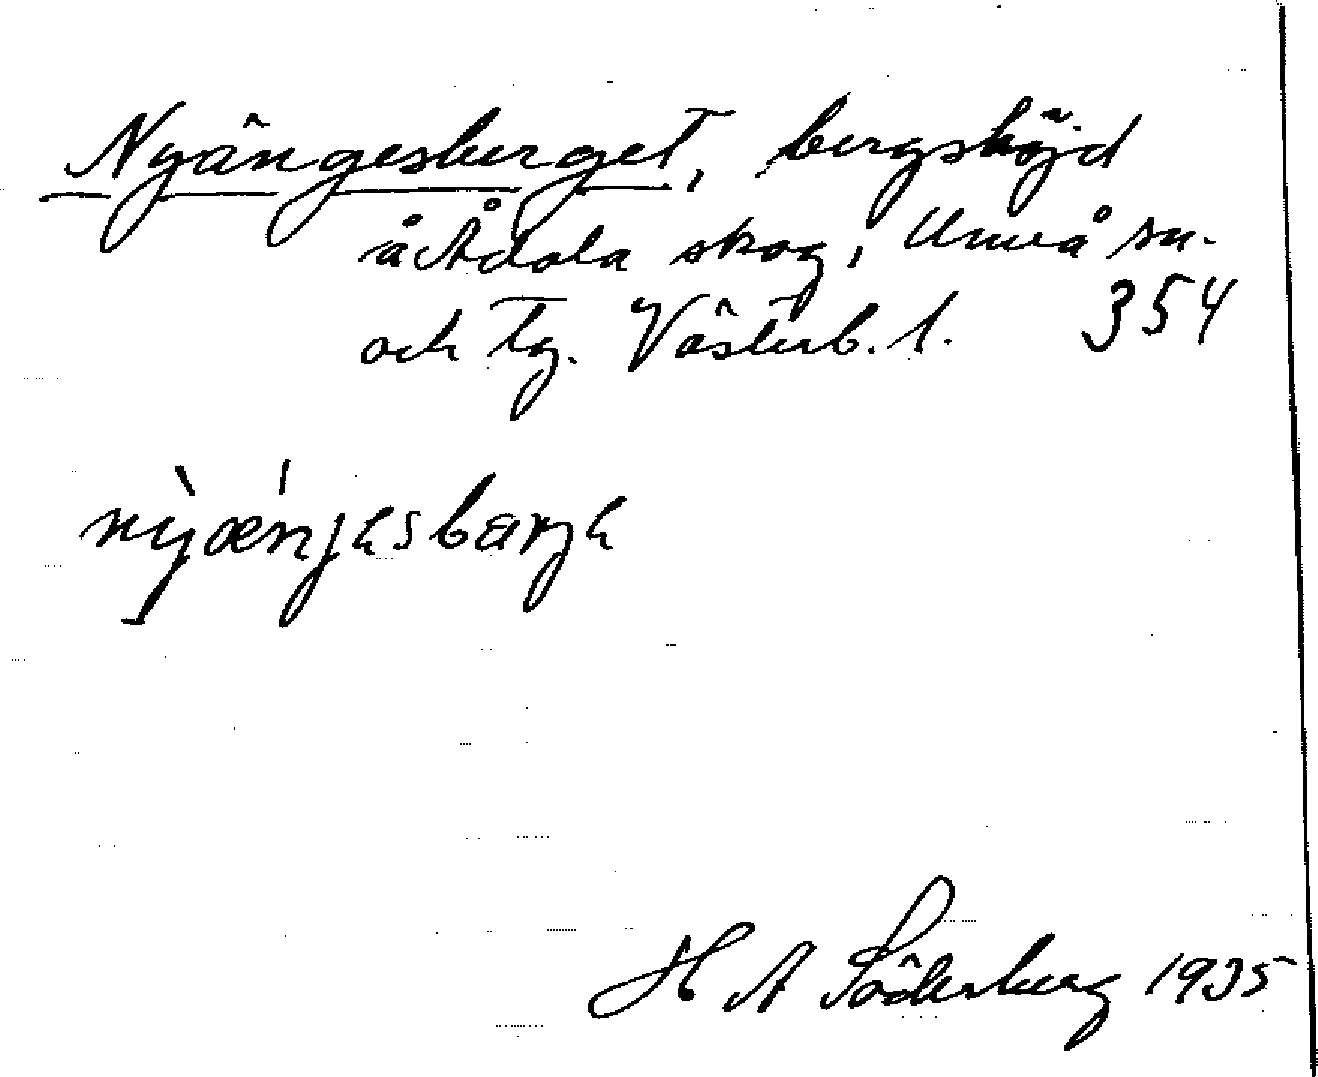 Nyängesberget, bergshöjd
å Ådala skog, Umeå sn.
och tg. Västerb. l. 354
H A Söderberg 1935